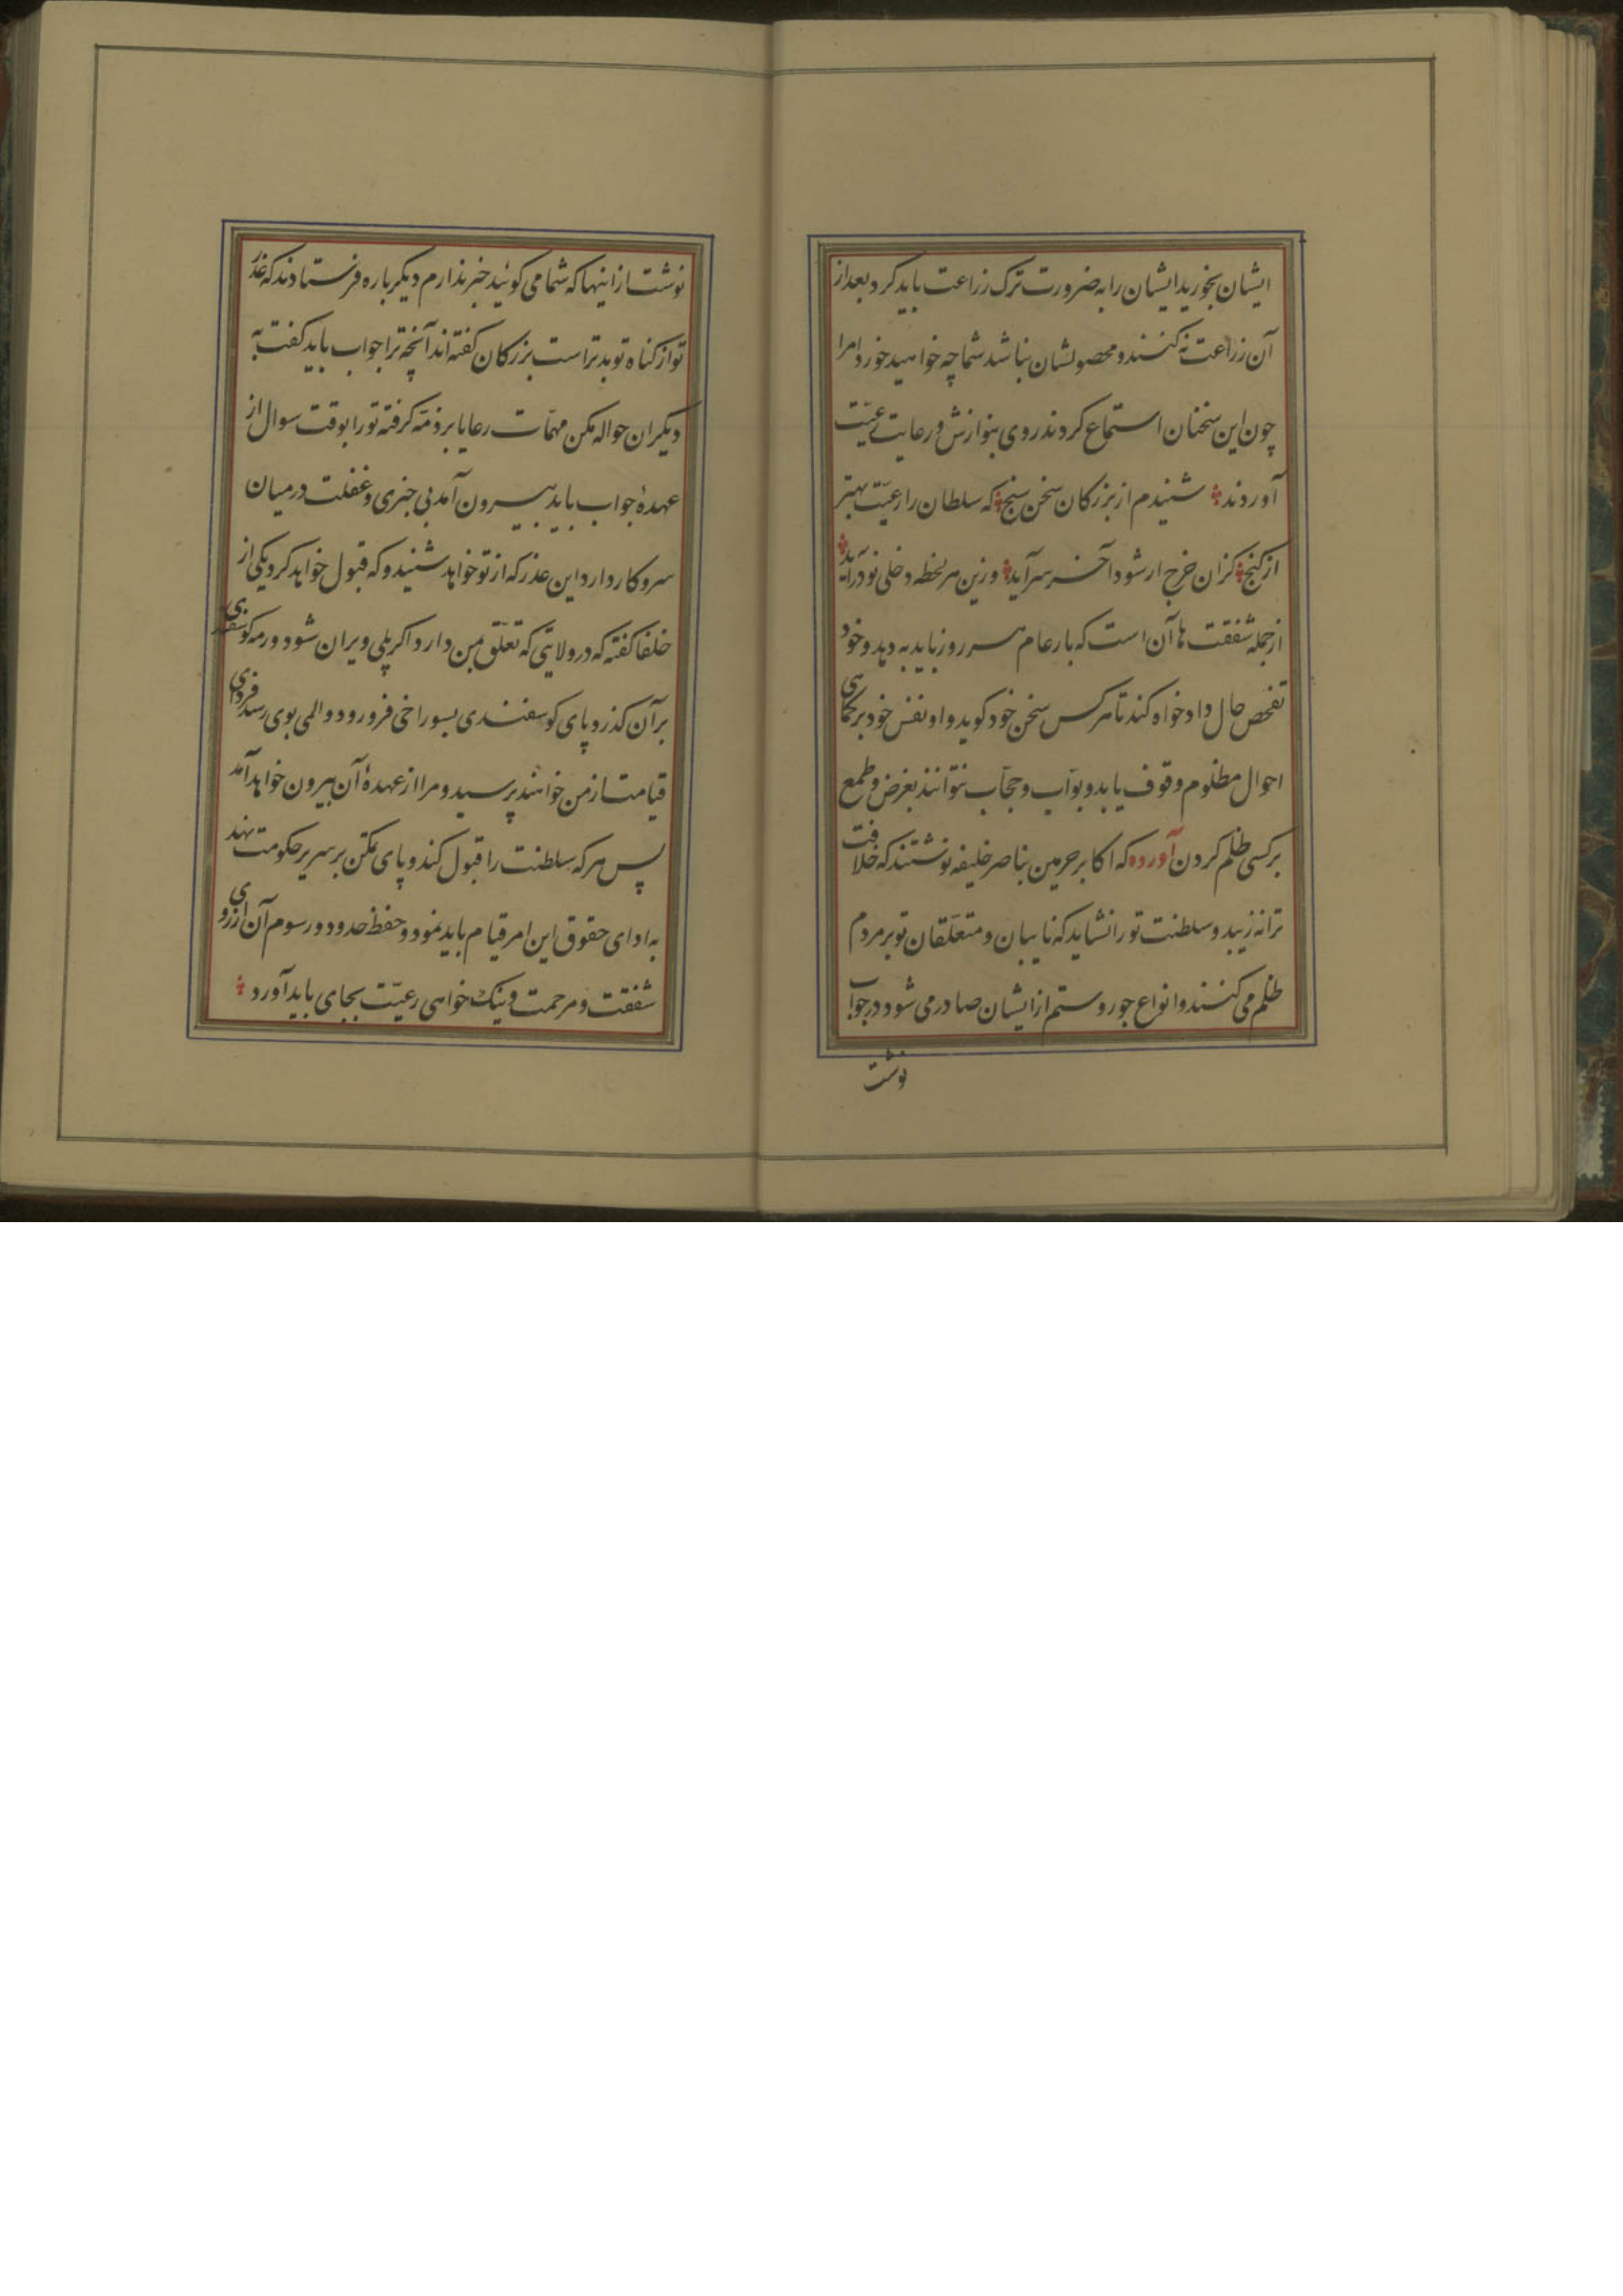 ایشان بخورید ایشان را به ضرورت ترک زراعت باید کرد و بعد از
آن زراعت نه کنند و محصولشان نباشد شما چه خواهید خورد امرا
چون این سخنان استماع کردند روی بنوازش و رعایت رعیّت
آوردند شنیدم از بزرکان سخن سنج که سلطان را رعیّت بهتر
از کنج کزان خرج ار شود آخر سر آید وزین هر لحظه دخلی نو در آید
از جمله شفقت ها آن است که بار عام هر روز باید به دهد و خود
تفحص حال داد خواه کند تا هر کس سخن خود کوید و او بنفس خود بر کماهی
احوال مظلوم وقوف یابد و بوّاب و حجّاب نتوانند بغرض و طمع
بر کسی ظلم کردن آورده که اکابر حرمین بناصر خلیفه نوشتند که خلافت
ترا نه زیبد و سلطنت تو را نشاید که نایبان و متعلّقان تو بر مردم
ظلم می کنند و انواع جور و ستم از ایشان صادر می شود در جواب
نوشت
نوشت از اینها که شما می کوئید خبر ندارم دیکر باره فرستادند که عذر
تو از کناه تو بد تر است بزرکان کفته اند آنچه ترا جواب باید کفت به
دیکران حواله مکن مهمّات رعایا بر ذمّه کرفته تو را بوقت سوال از
عهدهٔ جواب باید بیرون آمد بی خبری و غفلت در میان
سر و کار دارد این عذر که از تو خواهد شنید و که قبول خواهد کرد یکی از
خلفا کفته که در ولایتی که تعلّق بمن دارد اکر پلی ویران شود و رمه کوسفندی
بر آن کذرد و پای کوسفندی بسوراخی فرو رود و المی بوی رسد فردای
قیامت از من خواهند پرسید و مرا از عهدهٔ آن بیرون خواهد آمد
پس هر که سلطنت را قبول کند و پای تمکّن بر سریر حکومت نهد
به ادای حقوق این امر قیام باید نمود و حفظ حدود و رسوم آن از روی
شفقت و مرحمت و نیک خواهی رعیّت بجای باید آورد